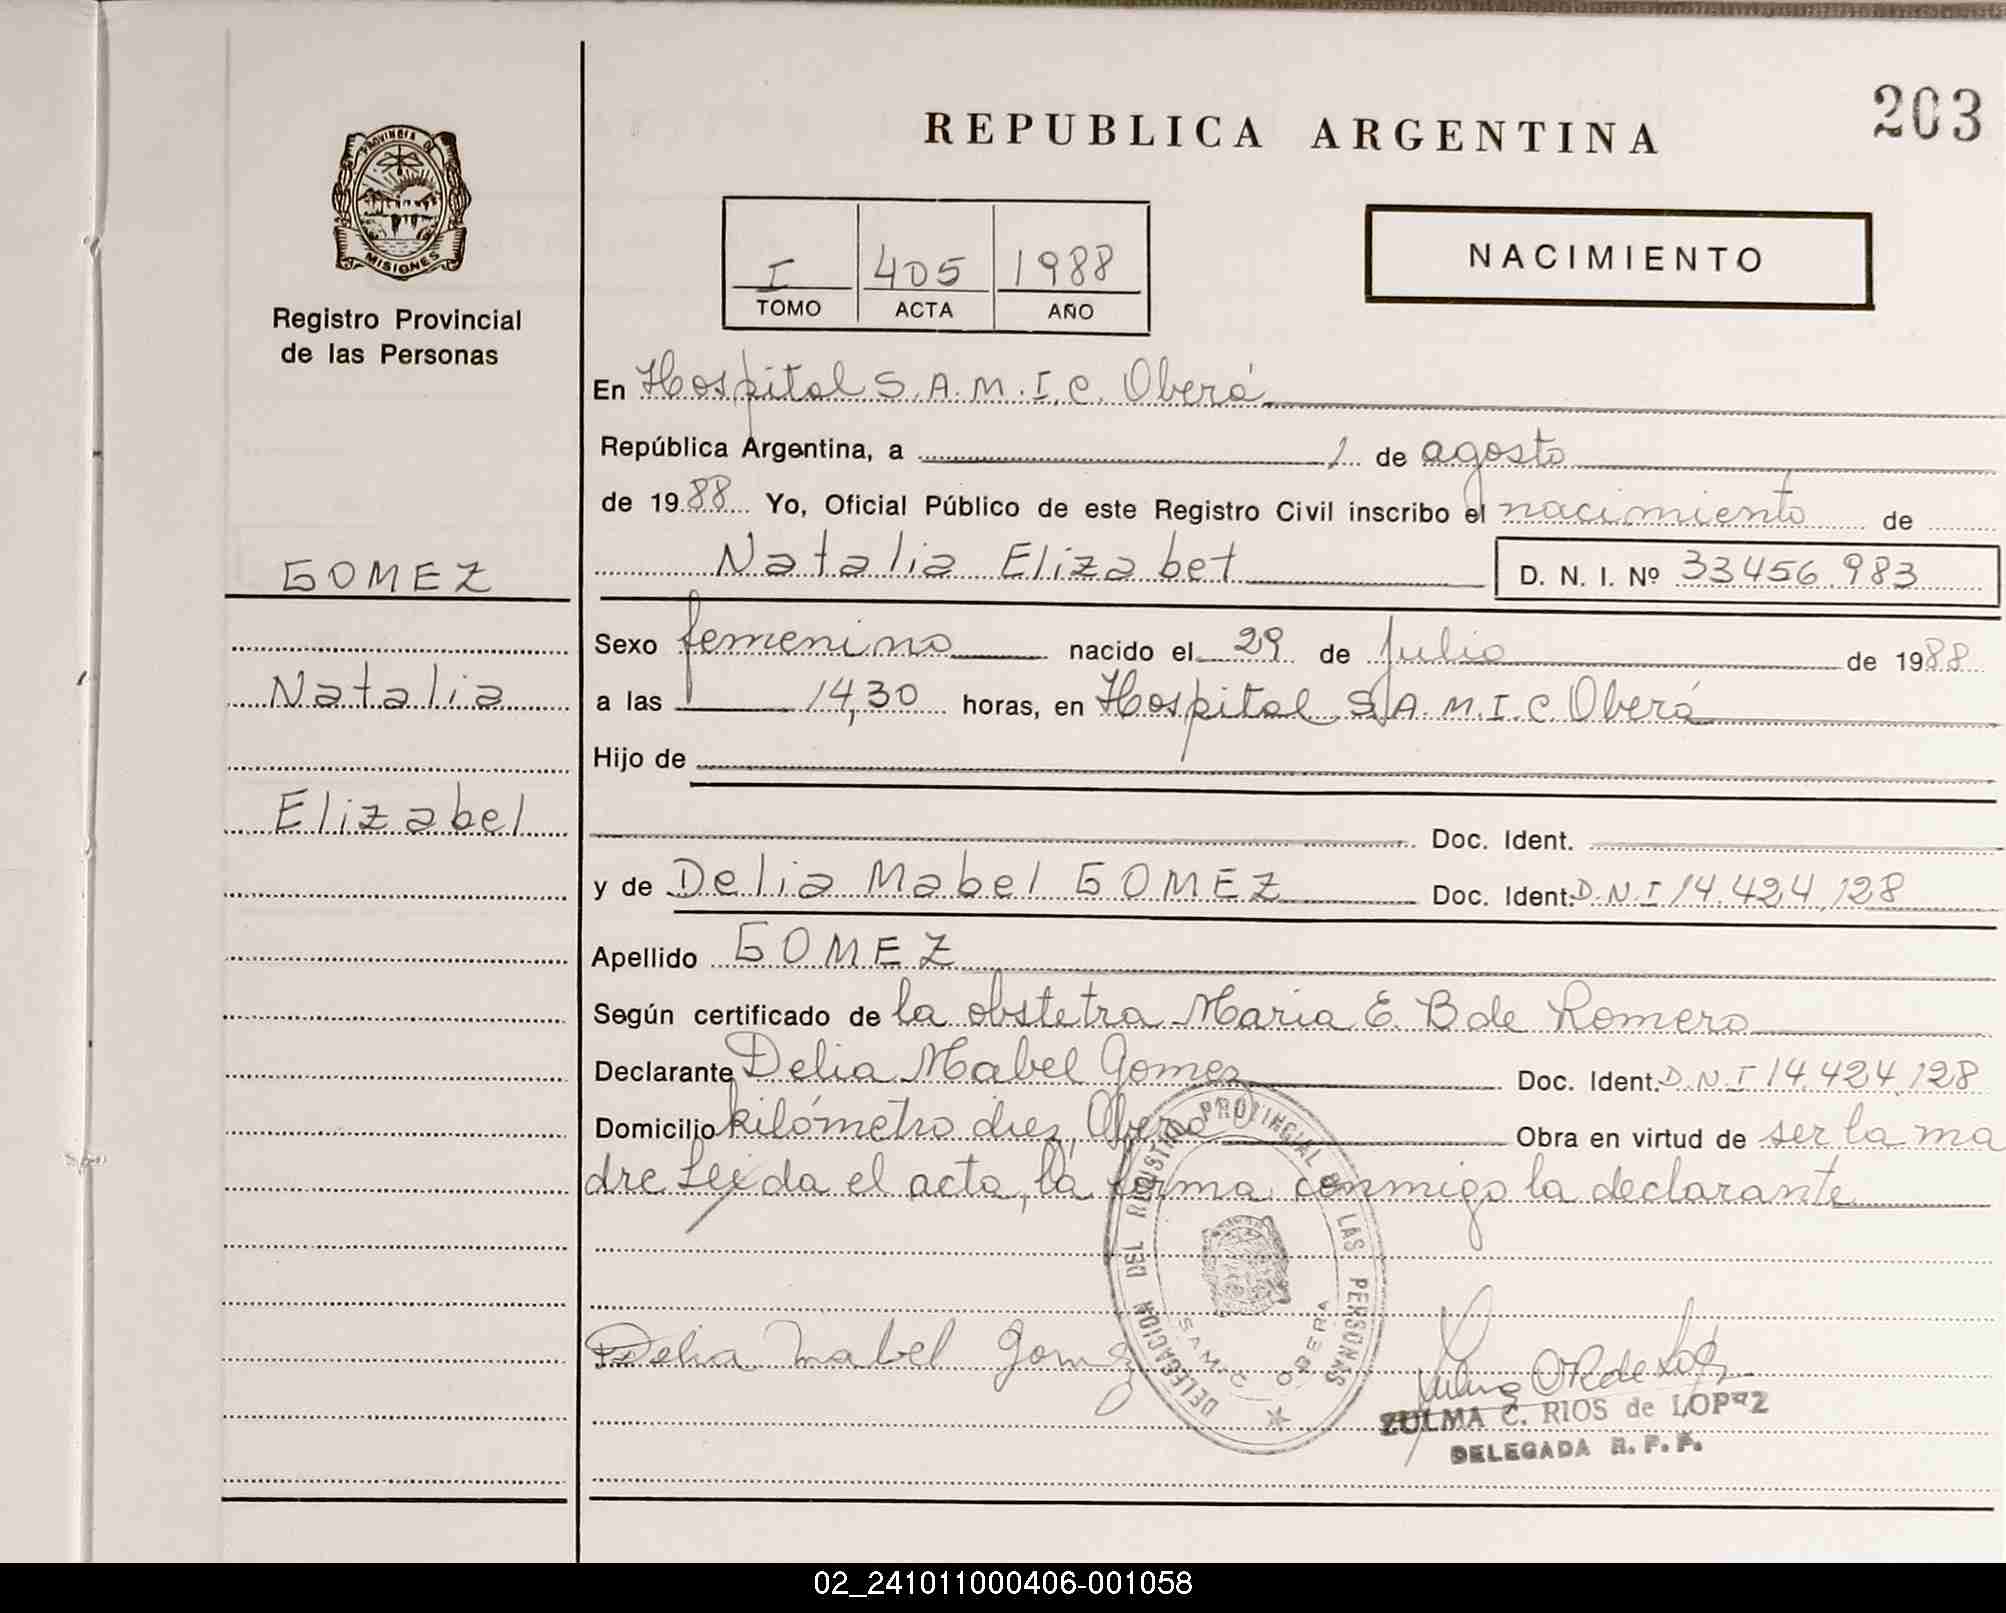 203
REPUBLICA ARGENTINA
PROVINCIA DE
MISIONES
Registro Provincial
de las Personas
I 405 1988
TOMO ACTA AÑO
NACIMIENTO
En Hospital S.A.M.I.C. Oberá
República Argentina, a 1 de agosto
de 1988 Yo, Oficial Público de este Registro Civil inscribo el nacimiento de
Natalia Elizabet D. N. I. Nº 33456.983
GOMEZ
Natalia
Elizabel
Sexo femenino nacido el 29 de Julio de 1988
a las 14,30 horas, en Hospital S.A.M.I.C Oberá
Hijo de
Doc. Ident.
y de Delia Mabel GOMEZ Doc. Ident. D.N.I 14.424.128
Apellido GOMEZ
Según certificado de la obstetra Maria E. B de Romero
Declarante Delia Mabel Gomez Doc. Ident. D.N.I 14.424.128
Domicilio kilómetro diez, Oberá Obra en virtud de ser la ma
dre Leida el acta, la firma conmigo la declarante
Delia Mabel Gomez
DELEGACION DEL REGISTRO PROVINCIAL DE LAS PERSONAS
SAMIC OBERA
ZULMA C. RIOS de LOPEZ
DELEGADA R. P. P.
02_241011000406-001058